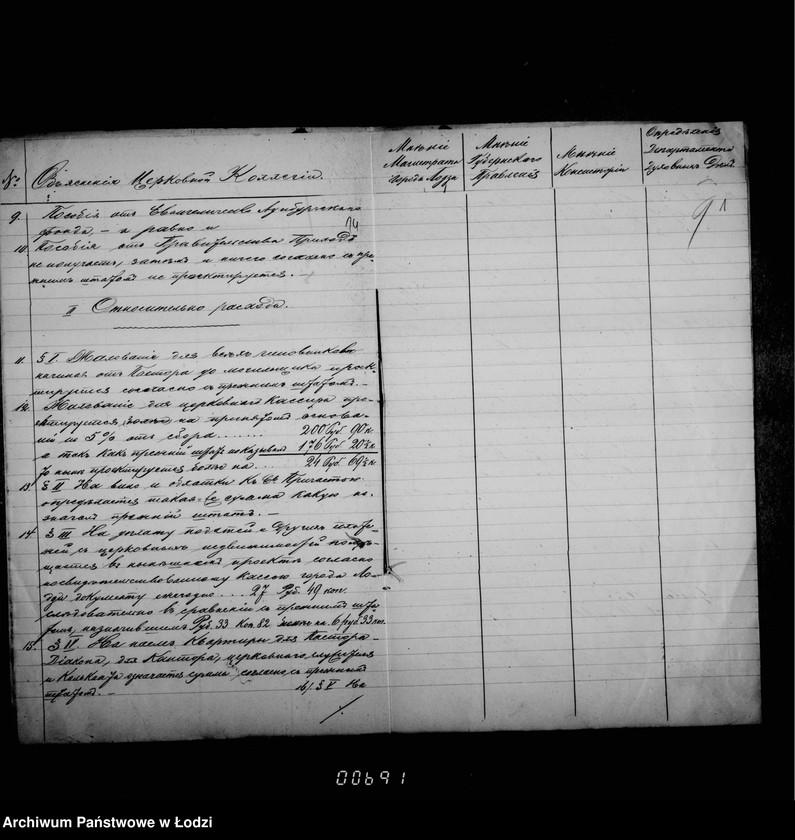 №
Объясненія Церковной Коллегіи.
Мнѣніе Магистрата города Лодзи
Мнѣніе Губернскаго Правленія
Мнѣніе Консисторіи
Опредѣленіе Департамента Духовныхъ Дѣлъ
91
14
9. Пособія отъ Евангелическо Аугсбургскаго
фонда, – а равно и
10. Пособія отъ Правительства Приходъ
не получаетъ, затѣмъ и ничего согласно съ пре-
жнимъ штатомъ не проектируется. –
II Относительно расхода.
11. § I. Жалованіе для всѣхъ чиновниковъ
начиная отъ Пастора до могильщика проек-
тируется согласно съ прежнимъ штатомъ. –
12. Жалованіе для церковнаго Кассира про-
ектируется на принятомъ основа-
ніи 5% отъ сбора ...... 200 Руб. 90 к.
а такъ какъ прежній штатъ показывалъ 176 Руб. 20½ к.
то нынѣ проектируется болѣе на ... 24 Руб. 69½ к.
13. § II На вино и облатки къ Св. Причастію
опредѣляется такая-же сумма какую на-
значалъ прежній штатъ. –
14. § III На уплату податей и другихъ
съ церковныхъ недвижимостей
въ нынѣшній проектъ согласно
засвидѣтельствованному кассою города Ло-
дзи документу ежегодно .... 27 Руб. 49 коп.
слѣдовательно въ сравненіи съ прежнимъ шта-
томъ, назначившимъ Руб. 33 Коп. 82 на 6 руб. 33 коп.
15. § IV. На наемъ Квартиры для Пастора-
Діакона, для Кантора, церковнаго служителя
и означается сумма согласно съ прежнимъ
штатомъ. –
16/. § V На
00691
Archiwum Państwowe w Łodzi